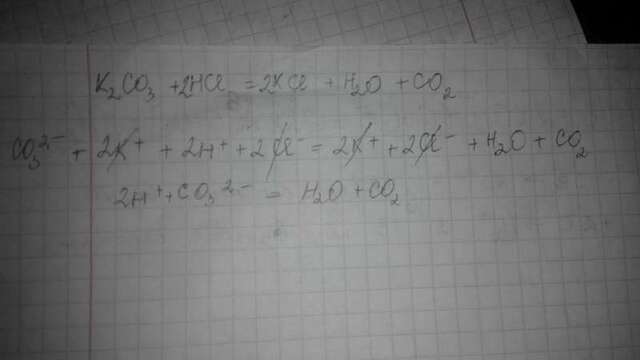 K₂CO₃ + 2HCl = 2KCl + H₂O + CO₂
CO₃²⁻ + 2K⁺ + 2H⁺ + 2Cl⁻ = 2K⁺ + 2Cl⁻ + H₂O + CO₂
2H⁺ + CO₃²⁻ = H₂O + CO₂